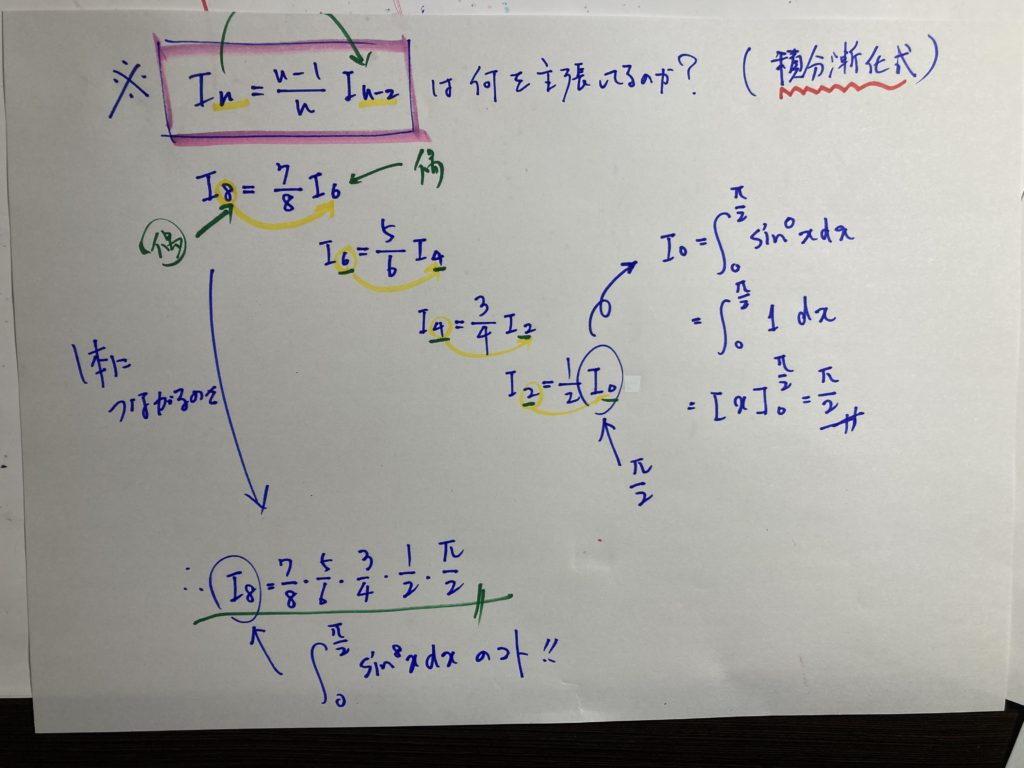 ※ Iₙ = (n-1)/n Iₙ₋₂ は何を主張してるのか? (積分漸化式)
I₈ = 7/8 I₆ ← 偶
偶
I₆ = 5/6 I₄
I₄ = 3/4 I₂
I₂ = 1/2 I₀
π/2
I₀ = ∫₀^(π/2) sin⁰xdx
= ∫₀^(π/2) 1 dx
= [x]₀^(π/2) = π/2
1本に
つながるのを
∴ I₈ = 7/8・5/6・3/4・1/2・π/2
∫₀^(π/2) sin⁸xdx のコト!!